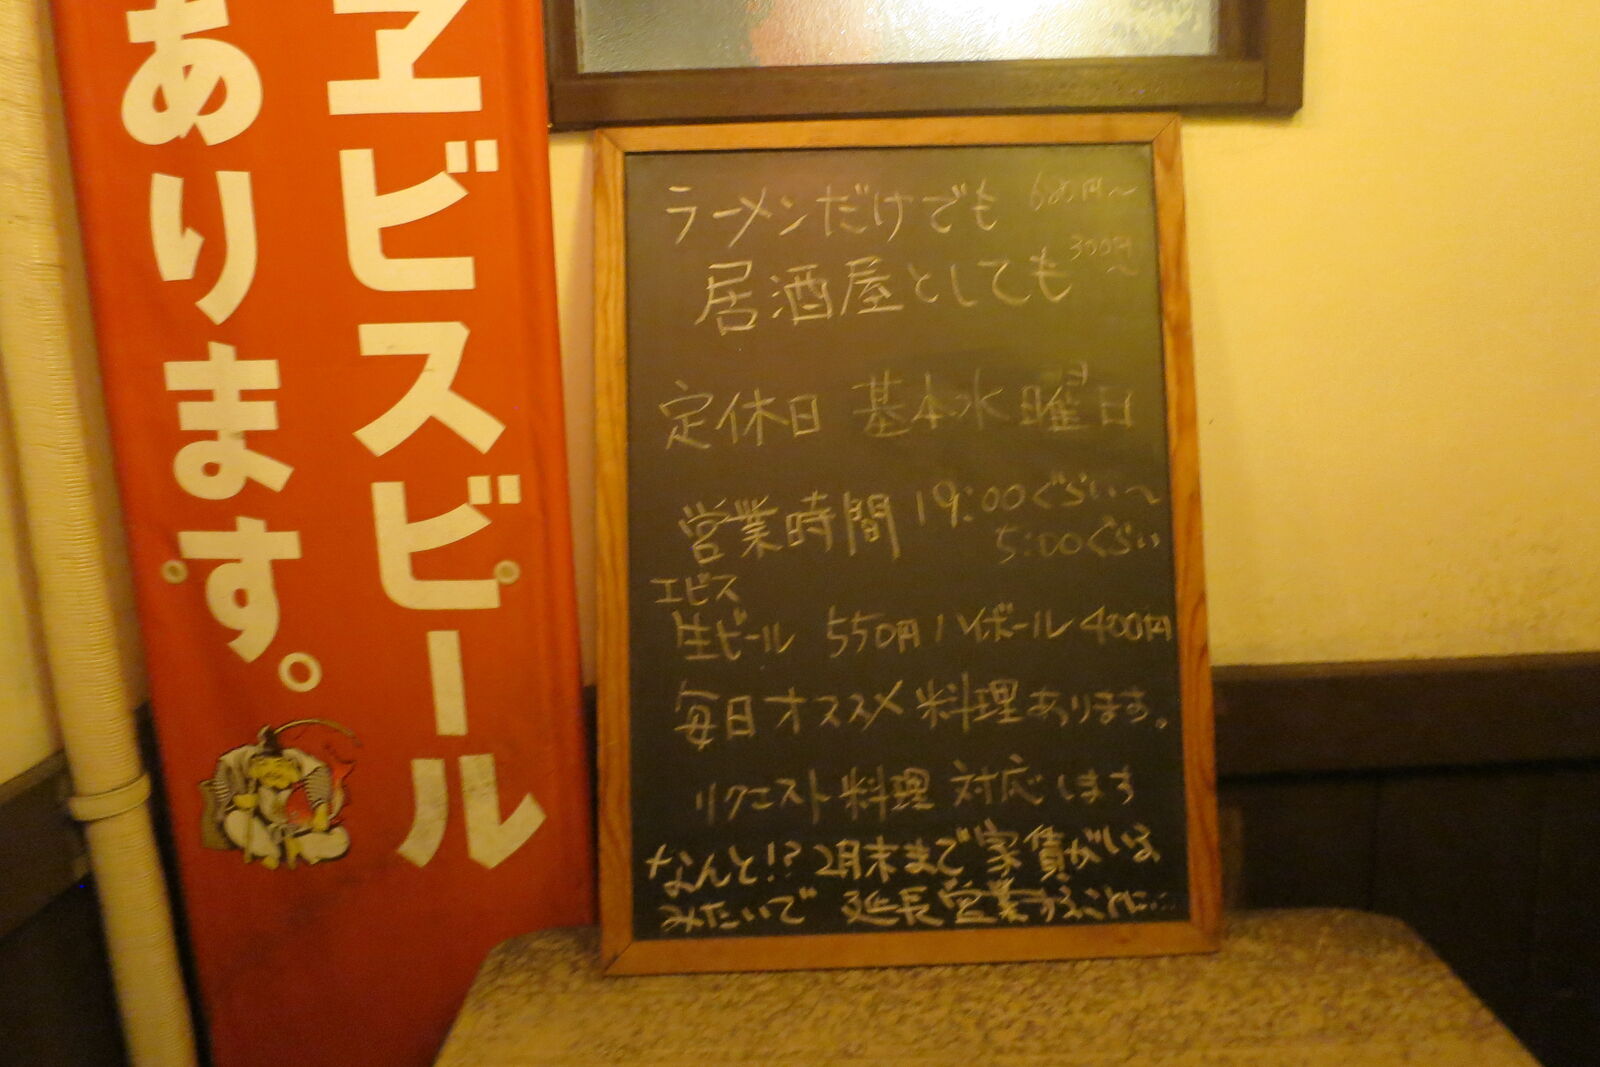 ヱビスビール
あります。
ラーメンだけでも 680円〜
居酒屋としても 300円〜
定休日 基本水曜日
営業時間 19:00ぐらい〜
5:00ぐらい
エビス
生ビール 550円 ハイボール 400円
毎日オススメ料理あります。
リクエスト料理 対応します
なんと!? 2月末まで家賃がいる
みたいで 延長営業することに…